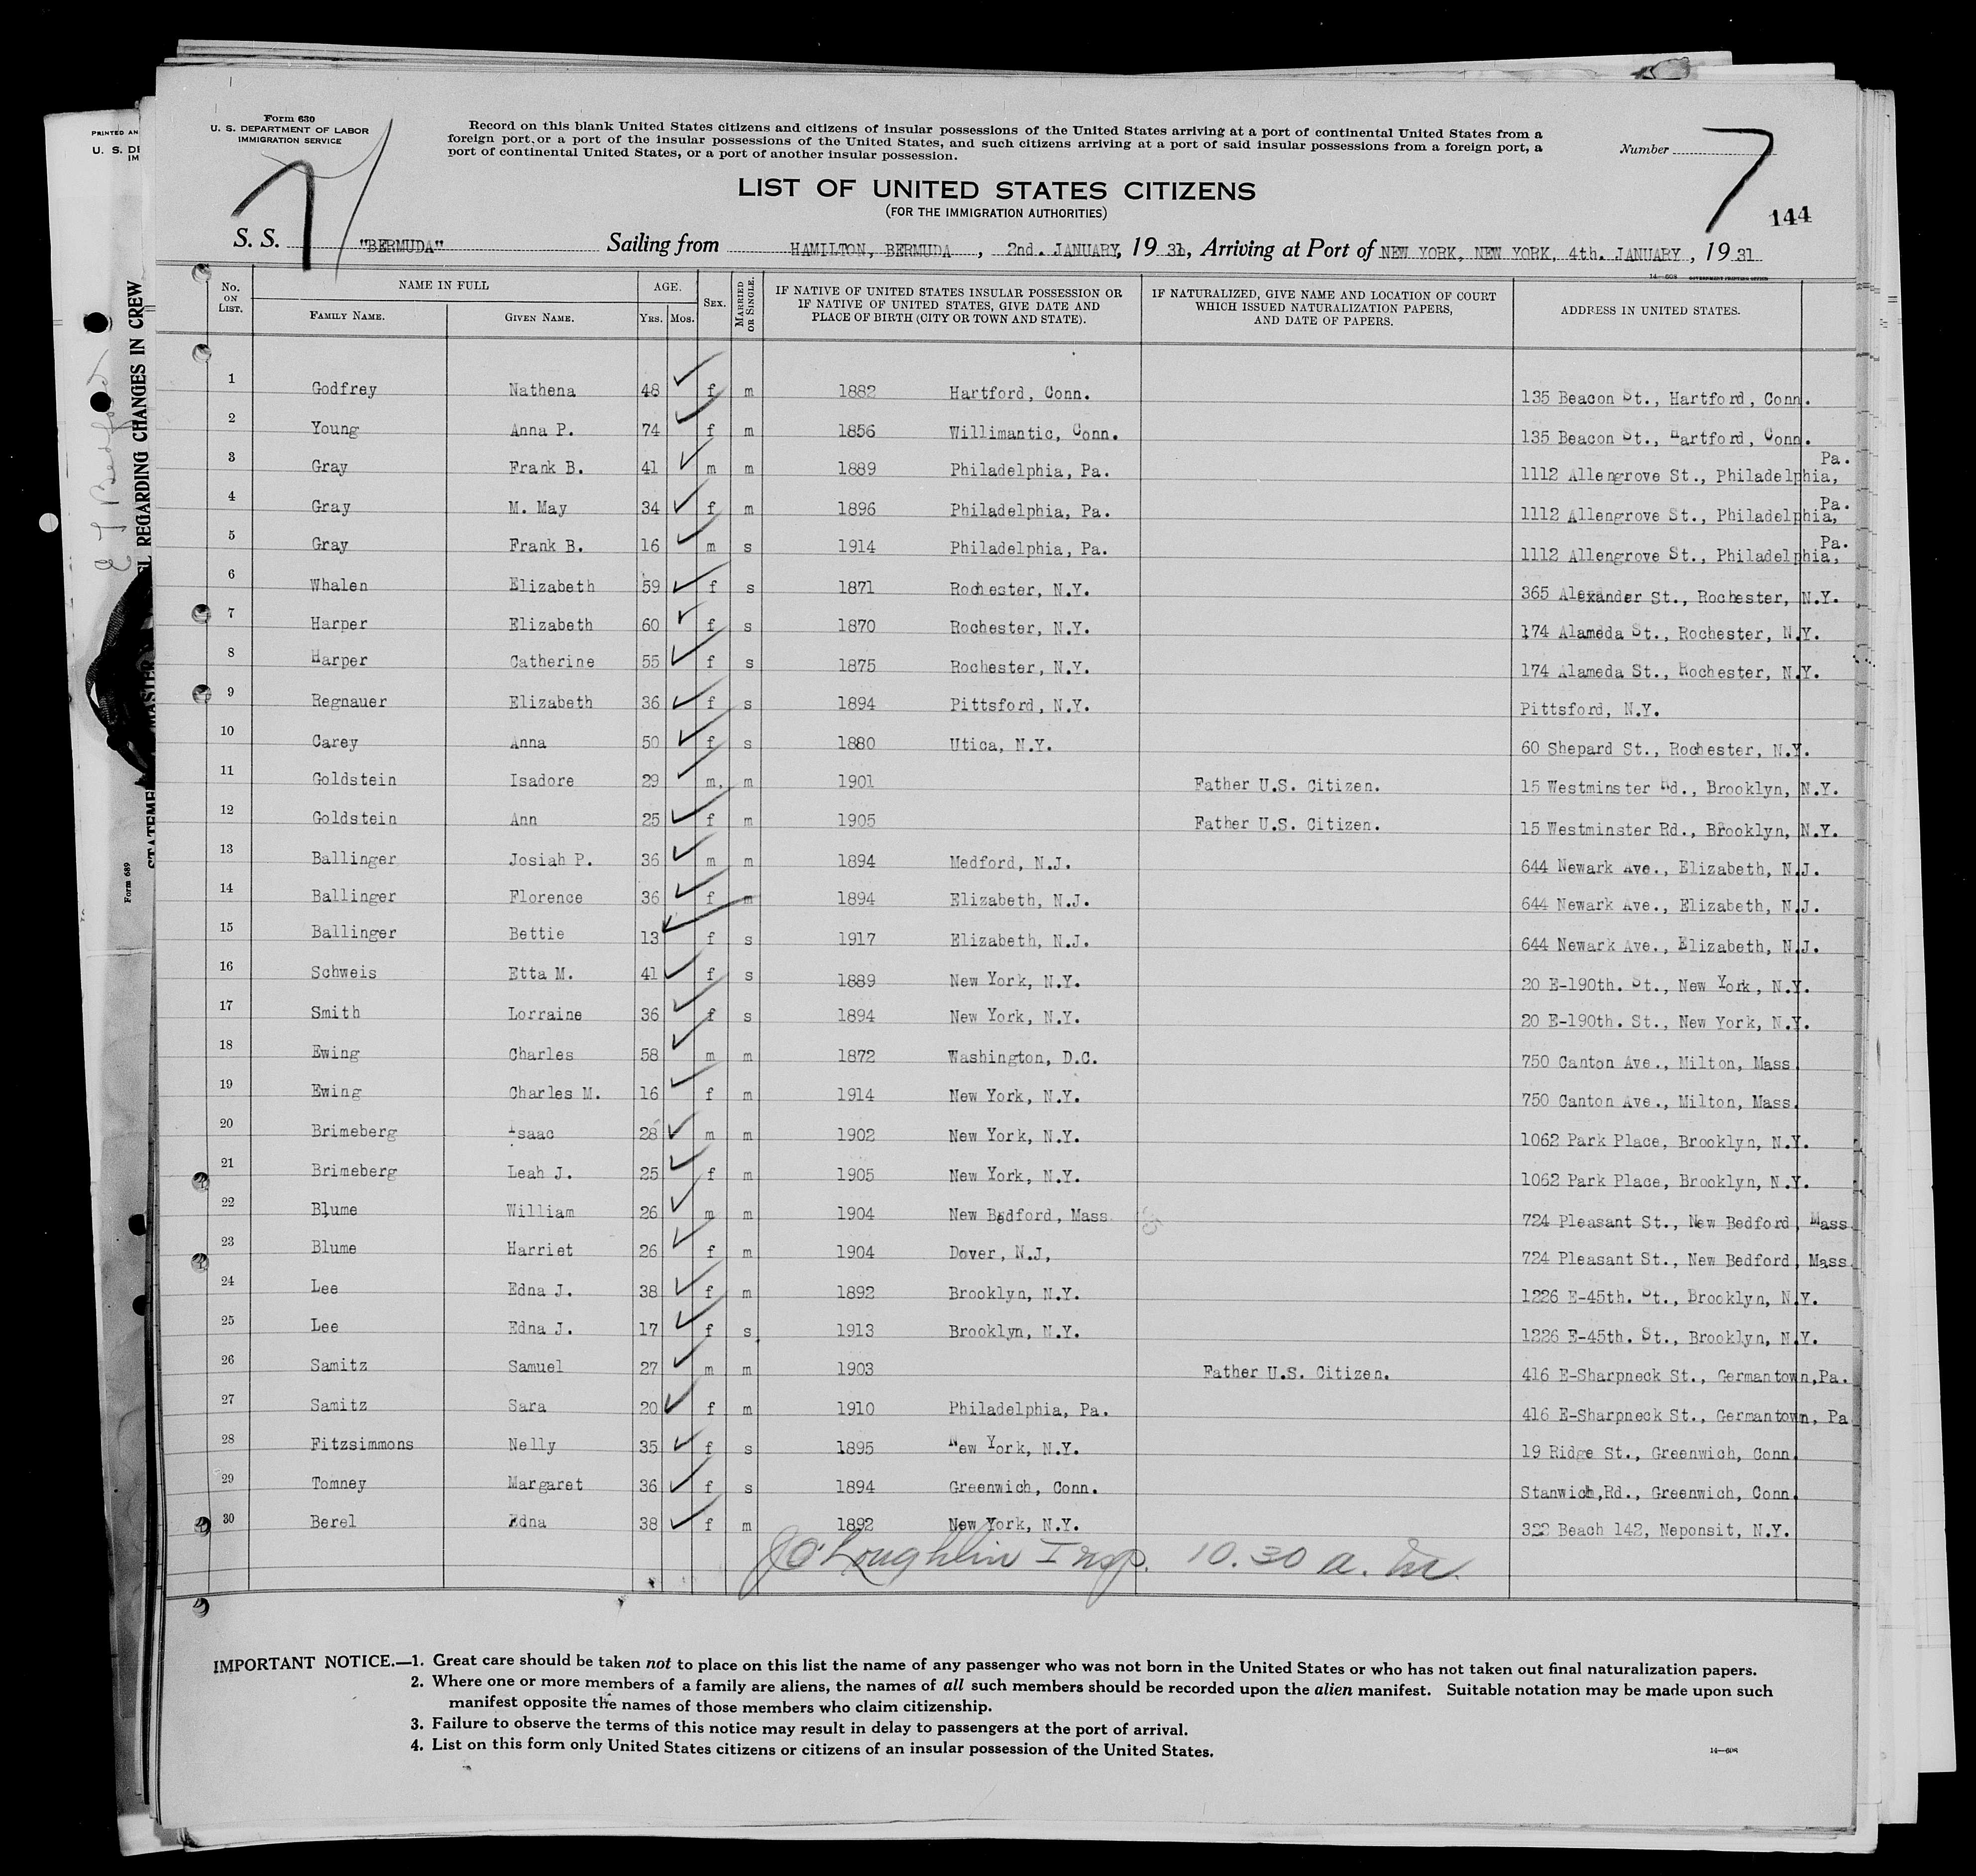 Form 630
U. S. DEPARTMENT OF LABOR
IMMIGRATION SERVICE
Record on this blank United States citizens and citizens of insular possessions of the United States arriving at a port of continental United States from a
foreign port, or a port of the insular possessions of the United States, and such citizens arriving at a port of said insular possessions from a foreign port, a
port of continental United States, or a port of another insular possession.
Number
7
7
144
LIST OF UNITED STATES CITIZENS
(FOR THE IMMIGRATION AUTHORITIES)
S. S. "BERMUDA" Sailing from HAMILTON, BERMUDA, 2nd. JANUARY, 1931, Arriving at Port of NEW YORK, NEW YORK, 4th. JANUARY, 1931
14—608 GOVERNMENT PRINTING OFFICE
No. ON LIST. NAME IN FULL FAMILY NAME. GIVEN NAME. AGE. YRS. MOS. SEX. MARRIED OR SINGLE. IF NATIVE OF UNITED STATES INSULAR POSSESSION OR IF NATIVE OF UNITED STATES, GIVE DATE AND PLACE OF BIRTH (CITY OR TOWN AND STATE). IF NATURALIZED, GIVE NAME AND LOCATION OF COURT WHICH ISSUED NATURALIZATION PAPERS, AND DATE OF PAPERS. ADDRESS IN UNITED STATES.
1 Godfrey Nathena 48 f m 1882 Hartford, Conn. 135 Beacon St., Hartford, Conn.
2 Young Anna P. 74 f m 1856 Willimantic, Conn. 135 Beacon St., Hartford, Conn.
3 Gray Frank B. 41 m m 1889 Philadelphia, Pa. 1112 Allengrove St., Philadelphia, Pa.
4 Gray M. May 34 f m 1896 Philadelphia, Pa. 1112 Allengrove St., Philadelphia, Pa.
5 Gray Frank B. 16 m s 1914 Philadelphia, Pa. 1112 Allengrove St., Philadelphia, Pa.
6 Whalen Elizabeth 59 f s 1871 Rochester, N.Y. 365 Alexander St., Rochester, N.Y.
7 Harper Elizabeth 60 f s 1870 Rochester, N.Y. 174 Alameda St., Rochester, N.Y.
8 Harper Catherine 55 f s 1875 Rochester, N.Y. 174 Alameda St., Rochester, N.Y.
9 Regnauer Elizabeth 36 f s 1894 Pittsford, N.Y. Pittsford, N.Y.
10 Carey Anna 50 f s 1880 Utica, N.Y. 60 Shepard St., Rochester, N.Y.
11 Goldstein Isadore 29 m. m 1901 Father U.S. Citizen. 15 Westminster Rd., Brooklyn, N.Y.
12 Goldstein Ann 25 f m 1905 Father U.S. Citizen. 15 Westminster Rd., Brooklyn, N.Y.
13 Ballinger Josiah P. 36 m m 1894 Medford, N.J. 644 Newark Ave., Elizabeth, N.J.
14 Ballinger Florence 36 f m 1894 Elizabeth, N.J. 644 Newark Ave., Elizabeth, N.J.
15 Ballinger Bettie 13 f s 1917 Elizabeth, N.J. 644 Newark Ave., Elizabeth, N.J.
16 Schweis Etta M. 41 f s 1889 New York, N.Y. 20 E-190th. St., New York, N.Y.
17 Smith Lorraine 36 f s 1894 New York, N.Y. 20 E-190th. St., New York, N.Y.
18 Ewing Charles 58 m m 1872 Washington, D.C. 750 Canton Ave., Milton, Mass.
19 Ewing Charles M. 16 f m 1914 New York, N.Y. 750 Canton Ave., Milton, Mass.
20 Brimeberg Isaac 28 m m 1902 New York, N.Y. 1062 Park Place, Brooklyn, N.Y.
21 Brimeberg Leah J. 25 f m 1905 New York, N.Y. 1062 Park Place, Brooklyn, N.Y.
22 Blume William 26 m m 1904 New Bedford, Mass 724 Pleasant St., New Bedford, Mass
23 Blume Harriet 26 f m 1904 Dover, N.J, 724 Pleasant St., New Bedford, Mass
24 Lee Edna J. 38 f m 1892 Brooklyn, N.Y. 1226 E-45th. St., Brooklyn, N.Y.
25 Lee Edna J. 17 f s 1913 Brooklyn, N.Y. 1226 E-45th. St., Brooklyn, N.Y.
26 Samitz Samuel 27 m m 1903 Father U.S. Citizen. 416 E-Sharpneck St., Germantown, Pa.
27 Samitz Sara 20 f m 1910 Philadelphia, Pa. 416 E-Sharpneck St., Germantown, Pa
28 Fitzsimmons Nelly 35 f s 1895 New York, N.Y. 19 Ridge St., Greenwich, Conn.
29 Tomney Margaret 36 f s 1894 Greenwich, Conn. Stanwich,Rd., Greenwich, Conn.
30 Berel Edna 38 f m 1892 New York, N.Y. 322 Beach 142, Neponsit, N.Y.
J O'Loughlin Insp. 10.30 a.m.
IMPORTANT NOTICE.—1. Great care should be taken not to place on this list the name of any passenger who was not born in the United States or who has not taken out final naturalization papers.
2. Where one or more members of a family are aliens, the names of all such members should be recorded upon the alien manifest. Suitable notation may be made upon such
manifest opposite the names of those members who claim citizenship.
3. Failure to observe the terms of this notice may result in delay to passengers at the port of arrival.
4. List on this form only United States citizens or citizens of an insular possession of the United States.
14—608
PRINTED AN
U. S. DE
IM
REGARDING CHANGES IN CREW
Form 689